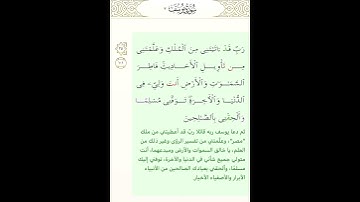 رَبِّ قَدْ ءَاتَيْتَنِى مِنَ ٱلْمُلْكِ وَعَلَّمْتَنِى
مِن تَأْوِيلِ ٱلْأَحَادِيثِ فَاطِرَ
ٱلسَّمَٰوَٰتِ وَٱلْأَرْضِ أَنتَ وَلِىِّۦ فِى
ٱلدُّنْيَا وَٱلْءَاخِرَةِ تَوَفَّنِى مُسْلِمًا
وَأَلْحِقْنِى بِٱلصَّٰلِحِينَ
ثم دعا يوسف ربه قائلا رب قد أعطيتني من ملك
"مصر"، وعلَّمتني من تفسير الرؤى وغير ذلك من
العلم، يا خالق السموات والأرض ومبدعهما، أنت
متولي جميع شأني في الدنيا والآخرة، توفني إليك
مسلمًا، وألحقني بعبادك الصالحين من الأنبياء
الأبرار والأصفياء الأخيار.